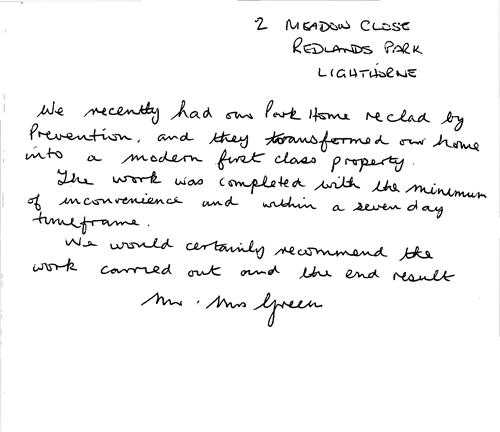 2 MEADOW CLOSE
REDLANDS PARK
LIGHTHORNE
We recently had our Park Home reclad by
Prevention, and they transformed our home
into a modern first class property.
The work was completed with the minimum
of inconvenience and within a seven day
timeframe.
We would certainly recommend the
work carried out and the end result
Mr. Mrs Green